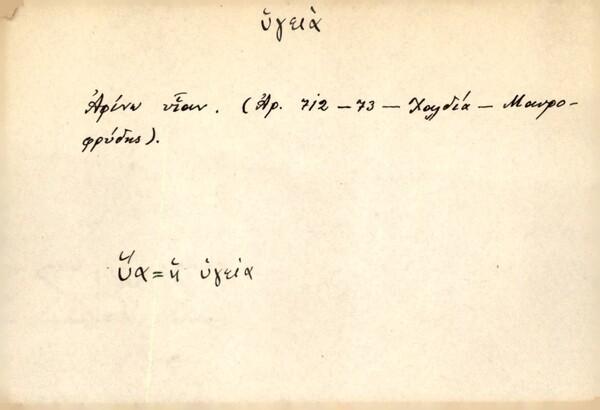 ὑγειὰ
Ἀφίνω υἵαν. (Ἀρ. 712 – 73 – Χαλδία – Μαυρο-
φρύδης).
Ὕα = ἡ ὑγεία